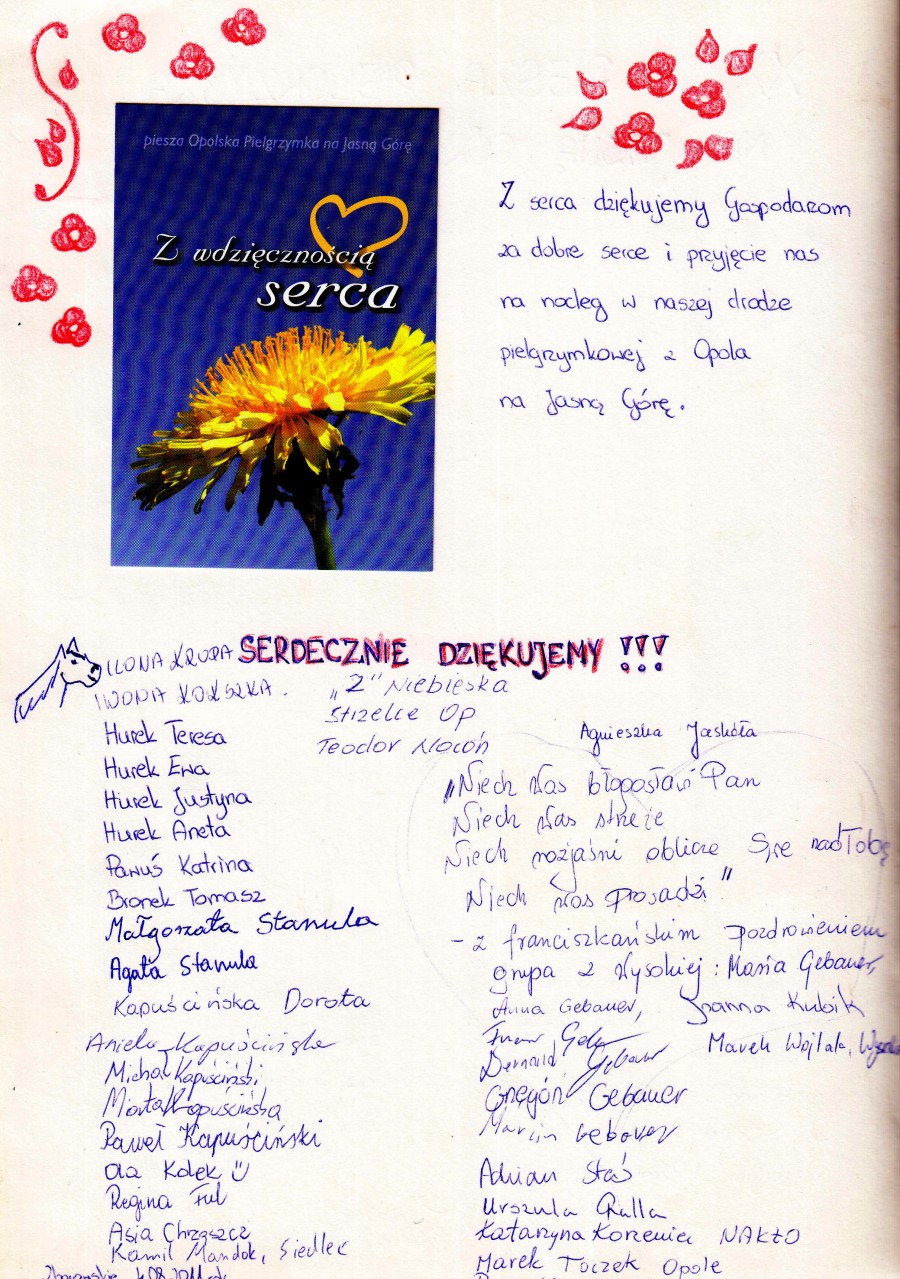 piesza Opolska Pielgrzymka na Jasną Górę
Z wdzięcznością
serca
Z serca dziękujemy Gospodarzom
za dobre serce i przyjęcie nas
na nocleg w naszej drodze
pielgrzymkowej z Opola
na Jasną Górę.
SERDECZNIE DZIĘKUJEMY !!!
ILONA KRUPA
IWONA KOKSZKA.
Hurek Teresa
Hurek Ewa
Hurek Justyna
Hurek Aneta
Pawuś Katrina
Bronek Tomasz
Małgorzata Stanula
Agata Stanula
Kapuścińska Dorota
Aniela Kapuścińska
Michał Kapuściński
Marta Kapuścińska
Paweł Kapuściński
Ola Kolek
Regina Ful
Asia Chrząszcz
Kamil Mandok, Siedlec
4.08.2011
„2" Niebieska
Strzelce Op
Teodor Nocoń
Agnieszka Jaskóła
„Niech Was błogosławi Pan
Niech Was strzeże
Niech rozjaśni oblicze Swe nad Tobą
Niech Was prowadzi"
- z franciszkańskim pozdrowieniem
grupa z Wysokiej: Maria Gebauer,
Anna Gebauer, Joanna Kubik
Marek Wojtala,
Bernard Gebauer
Grzegorz Gebauer
Marcin Gebauer
Adrian Staś
Urszula Gralla
Katarzyna Korzeniec NAKŁO
Marek Toczek Opole